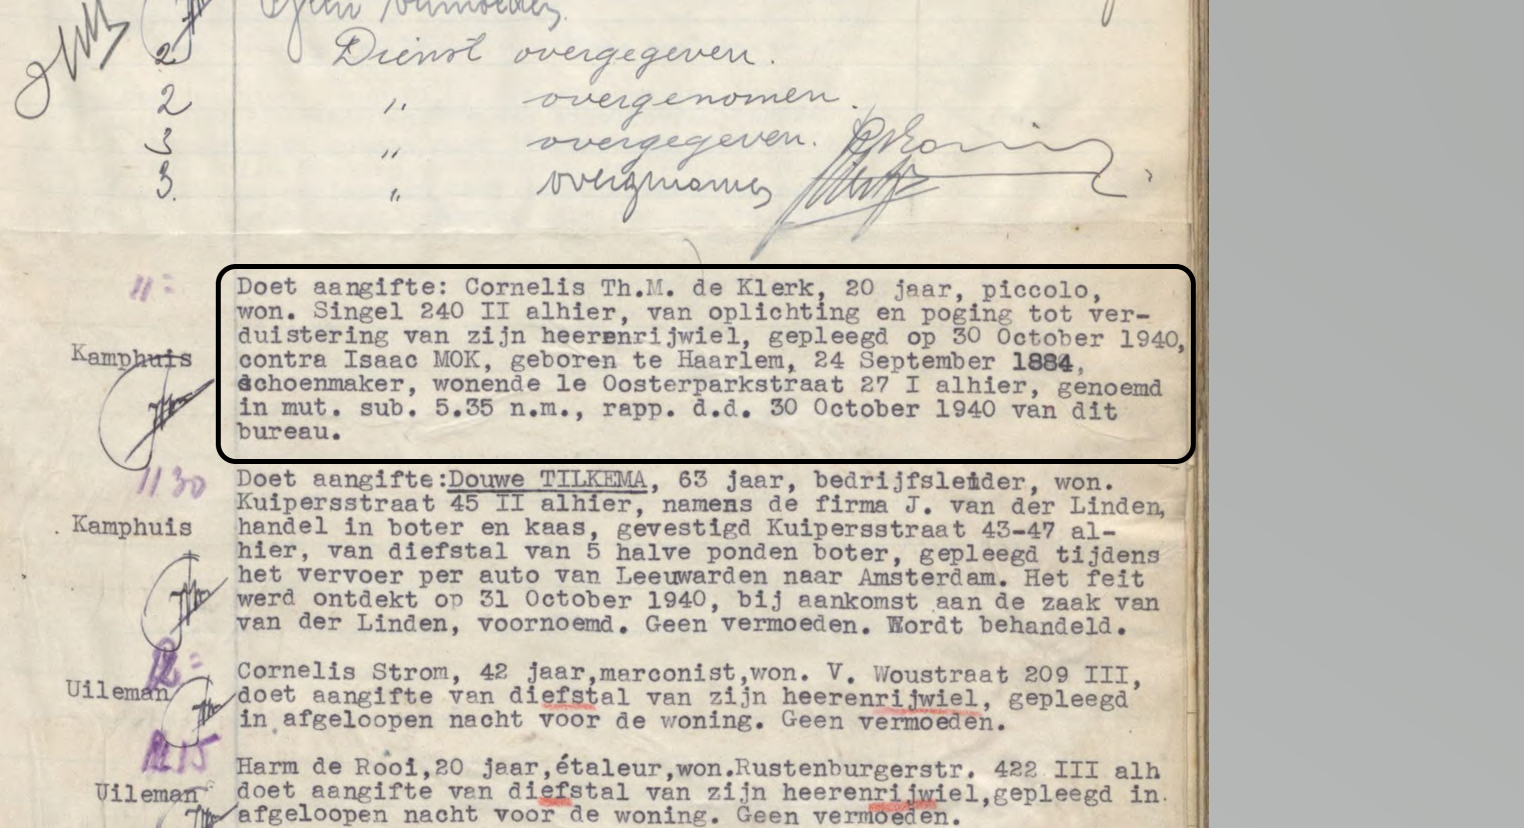 Geen vermoeden.
2 Dienst overgegeven.
2 " overgenomen.
3 " overgegeven.
3. " overgenomen
11=
Doet aangifte: Cornelis Th.M. de Klerk, 20 jaar, piccolo,
won. Singel 240 II alhier, van oplichting en poging tot ver-
duistering van zijn heerenrijwiel, gepleegd op 30 October 1940,
Kamphuis
contra Isaac MOK, geboren te Haarlem, 24 September 1884,
schoenmaker, wonende 1e Oosterparkstraat 27 I alhier, genoemd
in mut. sub. 5.35 n.m., rapp. d.d. 30 October 1940 van dit
bureau.
11 30
Doet aangifte:Douwe TILKEMA, 63 jaar, bedrijfsleider, won.
Kuipersstraat 45 II alhier, namens de firma J. van der Linden,
Kamphuis
handel in boter en kaas, gevestigd Kuipersstraat 43-47 al-
hier, van diefstal van 5 halve ponden boter, gepleegd tijdens
het vervoer per auto van Leeuwarden naar Amsterdam. Het feit
werd ontdekt op 31 October 1940, bij aankomst aan de zaak van
van der Linden, voornoemd. Geen vermoeden. Wordt behandeld.
12=
Cornelis Strom, 42 jaar,marconist,won. V. Woustraat 209 III,
Uileman
doet aangifte van diefstal van zijn heerenrijwiel, gepleegd
in afgeloopen nacht voor de woning. Geen vermoeden.
12 15
Harm de Rooi,20 jaar,étaleur,won.Rustenburgerstr. 422 III alh
Uileman
doet aangifte van diefstal van zijn heerenrijwiel,gepleegd in
afgeloopen nacht voor de woning. Geen vermoeden.